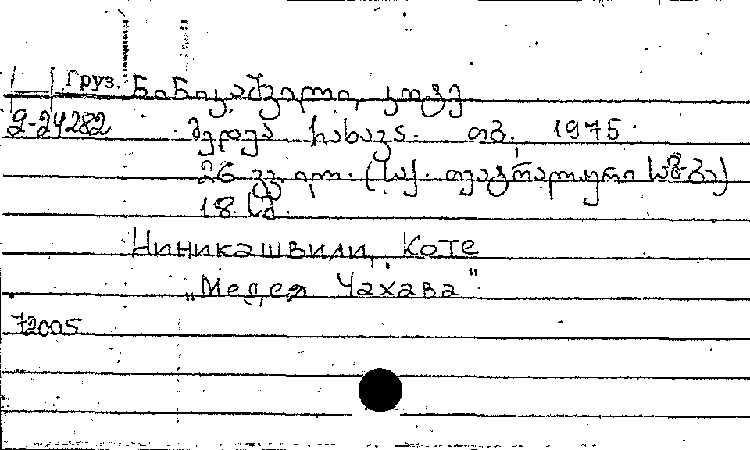 Груз. ნინიკაშვილი, კოტე
2-24282 მედეა ჩახავა. თბ. 1975
26 გვ. ილ. (საქ. თეატრალური საზ-ბა)
18 სმ.
Ниникашвили, Коте
„Медея Чахава".
72005